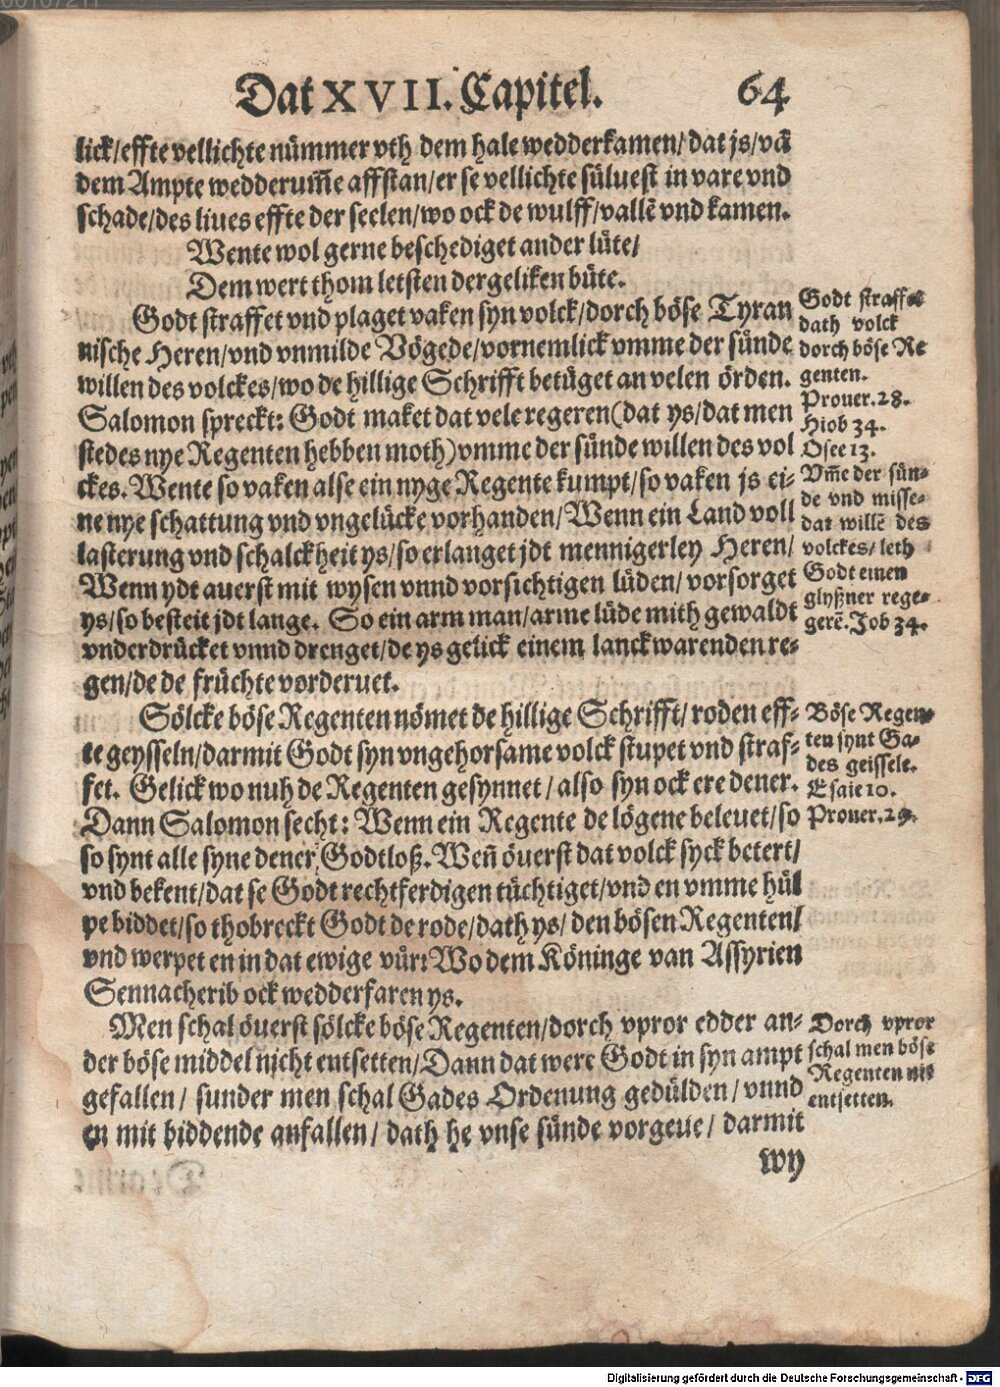 Dat XVII. Capitel. 64
lick/effte vellichte nümmer vth dem hale wedderkamen/dat js/vā
dem Ampte wedderum̃e affstan/er se vellichte süluest in vare vnd
schade/des liues effte der seelen/wo ock de wulff/vallē vnd kamen.
Wente wol gerne beschediget ander lüte/
Dem wert thom letsten dergeliken büte.
Godt straffet vnd plaget vaken syn volck/dorch böse Tyran
nische Heren/vnd vnmilde Vögede/vornemlick vmme der sünde
willen des volckes/wo de hillige Schrifft betüget an velen örden.
Salomon spreckt: Godt maket dat vele regeren(dat ys/dat men
stedes nye Regenten hebben moth)vmme der sünde willen des vol
ckes. Wente so vaken alse ein nyge Regente kumpt/so vaken js ei-
ne nye schattung vnd vngelücke vorhanden/Wenn ein Land voll
lasterung vnd schalckheit ys/so erlanget jdt mennigerley Heren/
Wenn ydt auerst mit wysen vnnd vorsichtigen lüden/vorsorget
ys/so besteit jdt lange. So ein arm man/arme lüde mith gewaldt
vnderdrücket vnnd drenget/de ys gelick einem lanckwarenden re-
gen/de de früchte vorderuet.
Godt straffet
dath volck
dorch böse Re
genten.
Prouer.28.
Hiob 34.
Osee 13.
Vm̃e der sün-
de vnd misse-
dat willē des
volckes/leth
Godt einen
glyßner rege-
gerē. Job 34.
Sölcke böse Regenten nömet de hillige Schrifft/roden eff-
te geysseln/darmit Godt syn vngehorsame volck stupet vnd straf-
fet. Gelick wo nuh de Regenten gesynnet/also syn ock ere dener.
Dann Salomon secht: Wenn ein Regente de lögene beleuet/so
so synt alle syne dener Godtloß. Wen̄ öuerst dat volck syck betert/
vnd bekent/dat se Godt rechtferdigen tüchtiget/vnd en vmme hül
pe biddet/so thobreckt Godt de rode/dath ys/den bösen Regenten/
vnd werpet en in dat ewige vür: Wo dem Köninge van Assyrien
Sennacherib ock wedderfaren ys.
Böse Regen-
ten synt Ga-
des geissele.
Esaie 10.
Prouer.29.
Men schal öuerst sölcke böse Regenten/dorch vpror edder an-
der böse middel nicht entsetten/Dann dat were Godt in syn ampt
gefallen/ sunder men schal Gades Ordenung gedülden/vnnd
en mit biddende anfallen/dath he vnse sünde vorgeue/ darmit
Dorch vpror
schal men böse
Regenten nit
entsetten.
wy
Digitalisierung gefördert durch die Deutsche Forschungsgemeinschaft - DFG